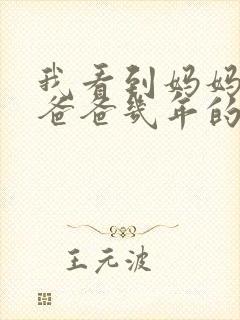 我看到妈妈
爸爸几年的
王元波